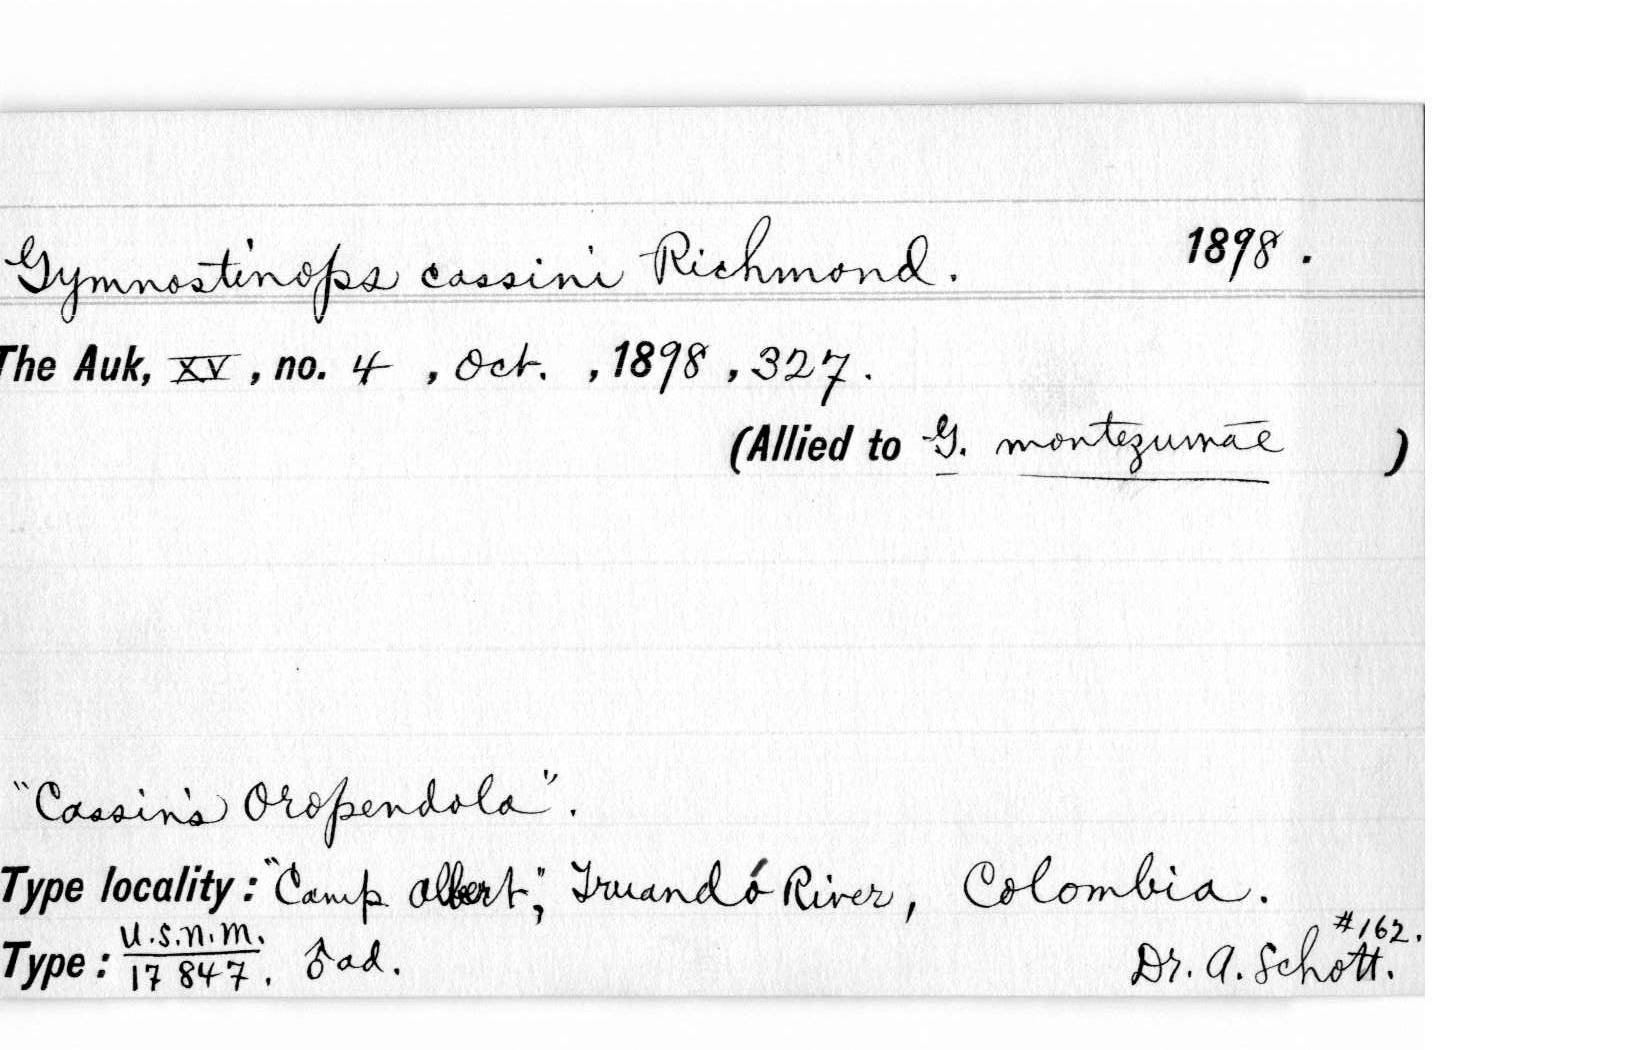 Gymnostinops cassini Richmond. 1898.
The Auk, XV, no. 4, Oct., 1898, 327.
(Allied to G. montezumae)
"Cassin's Oropendola".
Type locality: "Camp Albert", Truandó River, Colombia.
#162.
Type: U.S.N.M. 17847. ♂ ad. Dr. A. Schott.